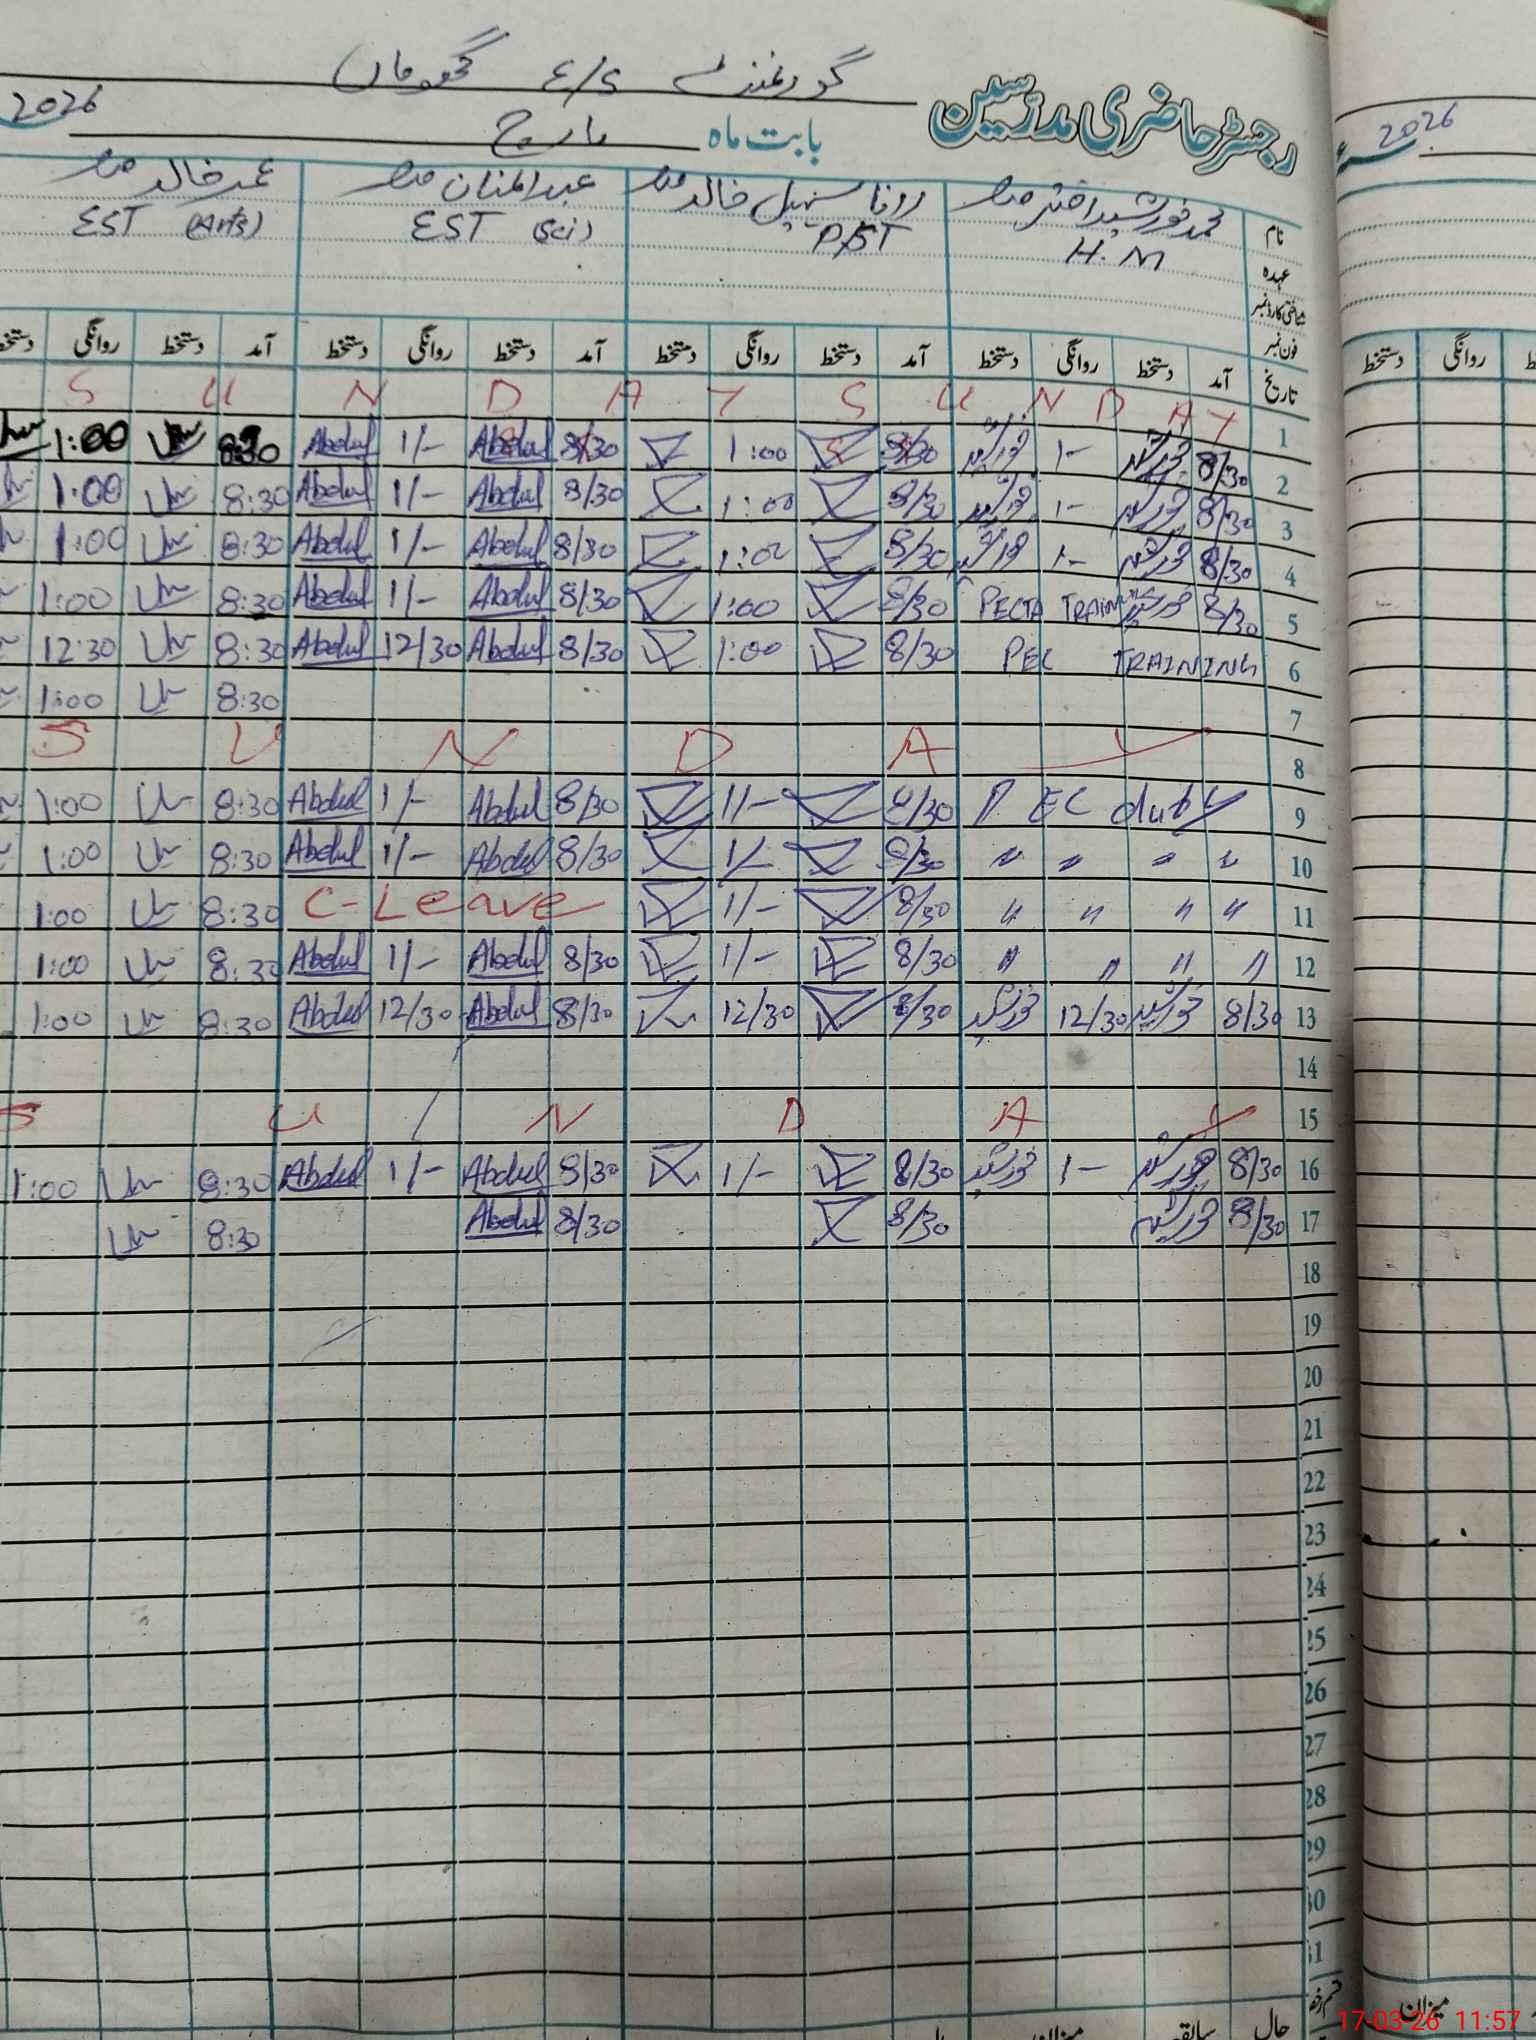 گورنمنٹ E/S
رجسٹر حاضری مدرسین
بابت ماہ مارچ 2026
نام محمد خورشید اختر رانا سہیل خالد عبدالمنان عمر خالد
عہدہ H.M PST EST (Sci) EST (Arts)
شناختی کارڈ نمبر
فون نمبر
تاریخ آمد دستخط روانگی دستخط آمد دستخط روانگی دستخط آمد دستخط روانگی دستخط آمد دستخط روانگی دستخط
1 S U N D A Y S U N D A Y
2 8/30 خورشید 1- خورشید 8/30 1:00 8/30 Abdul 1/- Abdul 8:30 1:00
3 8/30 خورشید 1- خورشید 8/30 1:00 8/30 Abdul 1/- Abdul 8:30 1:00
4 8/30 خورشید 1- خورشید 8/30 1:00 8/30 Abdul 1/- Abdul 8:30 1:00
5 8/30 خورشید PECTA TRAINING 8/30 1:00 8/30 Abdul 1/- Abdul 8:30 1:00
6 PEC TRAINING 8/30 1:00 8/30 Abdul 12/30 Abdul 8:30 12:30
7 8:30 1:00
8 S U N D A Y
9 PEC duty 8/30 1/- 8/30 Abdul 1/- Abdul 8:30 1:00
10 " " " " 8/30 1/- 8/30 Abdul 1/- Abdul 8:30 1:00
11 " " " " 8/30 1/- C-Leave 8:30 1:00
12 " " " " 8/30 1/- 8/30 Abdul 1/- Abdul 8:30 1:00
13 8/30 خورشید 12/30 خورشید 8/30 12/30 8/30 Abdul 12/30 Abdul 8:30 1:00
14
15 S U N D A Y
16 8/30 خورشید 1- خورشید 8/30 1/- 8/30 Abdul 1/- Abdul 8:30 1:00
17 8/30 خورشید 8/30 8/30 Abdul 8:30
18
19
20
21
22
23
24
25
26
27
28
29
30
31
حال سابقہ میزان
2026
روانگی دستخط
میزان
17-03-26 11:57